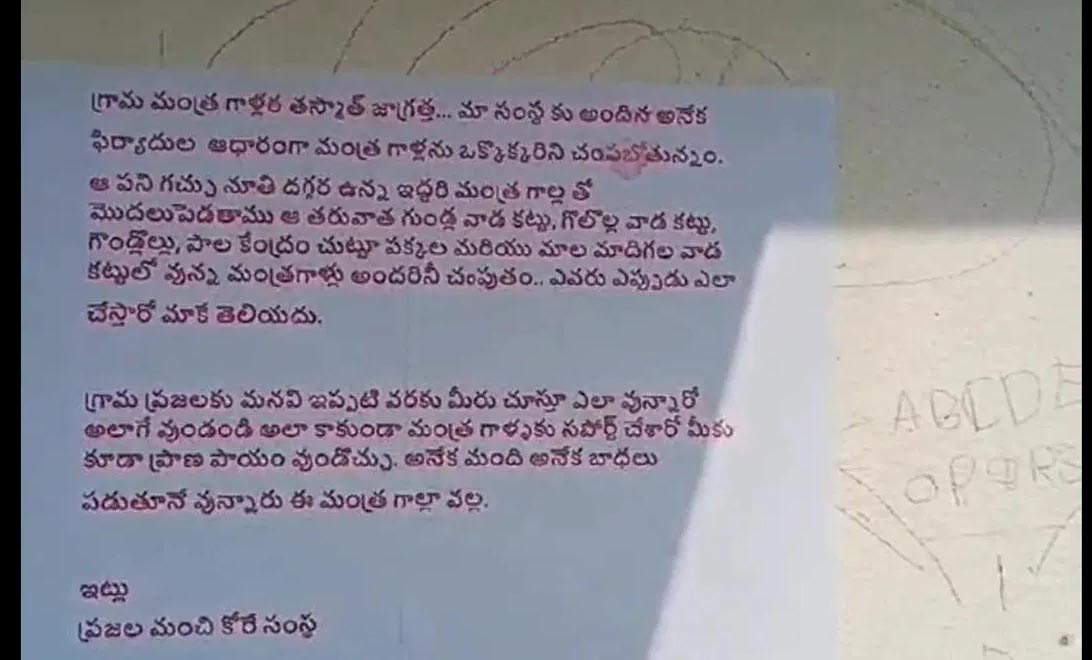 గ్రామ మంత్ర గాళ్లర తస్మాత్ జాగ్రత్త... మా సంస్థ కు అందిన అనేక
ఫిర్యాదుల ఆధారంగా మంత్ర గాళ్లను ఒక్కొక్కరిని చంపబోతున్నం.
ఆ పని గచ్చు నూతి దగ్గర ఉన్న ఇద్దరి మంత్ర గాల్ల తో
మొదలుపెడతాము ఆ తరువాత గుండ్ల వాడ కట్టు, గొలొల్ల వాడ కట్టు,
గౌండ్లొల్లు, పాల కేంద్రం చుట్టూ పక్కల మరియు మాల మాదిగల వాడ
కట్టులో వున్న మంత్రగాళ్లు అందరినీ చంపుతం.. ఎవరు ఎప్పుడు ఎలా
చేస్తారో మాకే తెలియదు.
గ్రామ ప్రజలకు మనవి ఇప్పటి వరకు మీరు చూస్తూ ఎలా వున్నారో
అలాగే వుండండి అలా కాకుండా మంత్ర గాళ్ళకు సపోర్ట్ చేశారో మీకు
కూడా ప్రాణ పాయం వుండొచ్చు. అనేక మంది అనేక బాధలు
పడుతూనే వున్నారు ఈ మంత్ర గాల్లా వల్ల.
ఇట్లు
ప్రజల మంచి కోరే సంస్థ
ABCDE
OPQRS